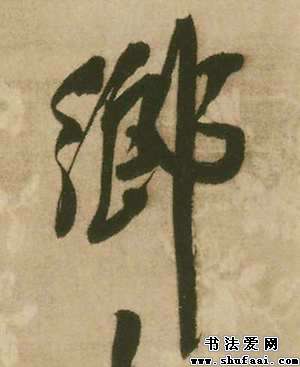 鄉
书法爱网
www.shufaai.com